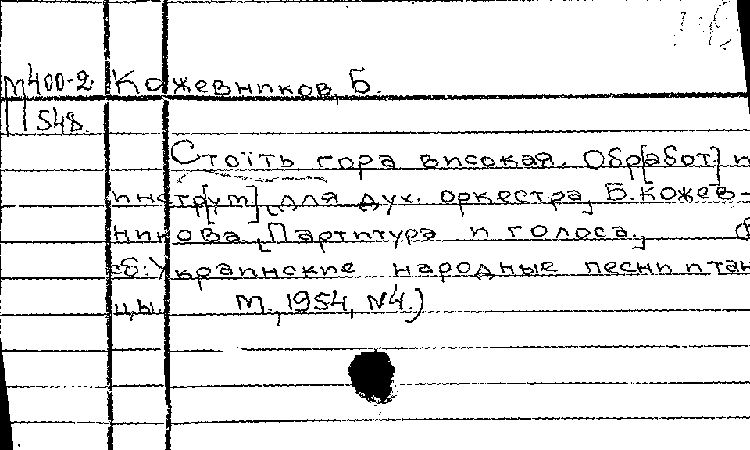 М400-2 Кожевников, Б.
548
Стоїть гора високая. Обр[абот] и
инстр[ум]. для дух. оркестра Б. Кожев-
никова. Партитура и голоса.
сб: Украинские народные песни и тан
цы. М., 1954, №4.)